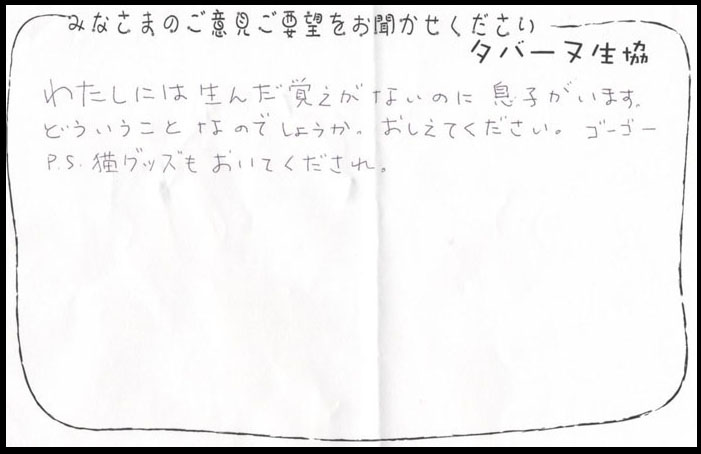 みなさまのご意見ご要望をお聞かせください
タバーヌ生協
わたしには生んだ覚えがないのに息子がいます。
どういうことなのでしょうか。おしえてください。ゴーゴー
P.S.猫グッズもおいてくだされ。